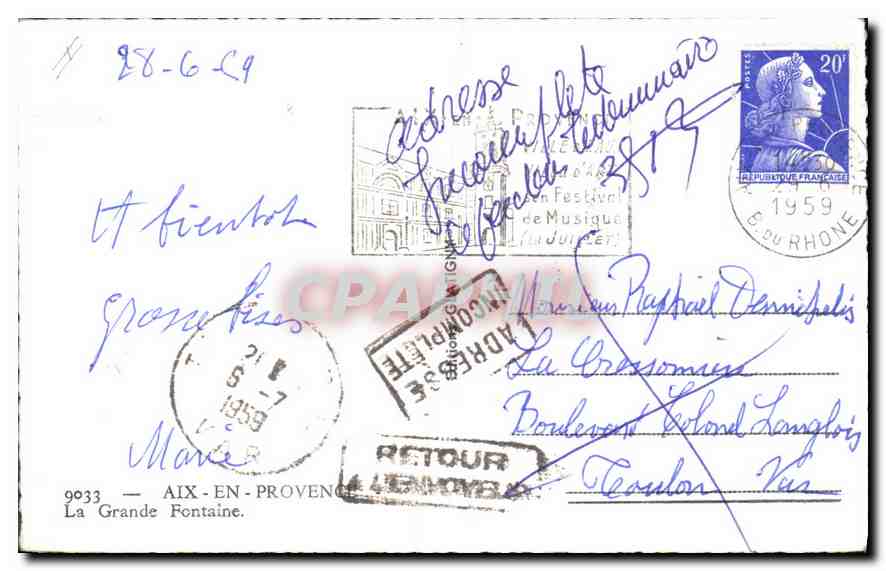 28-6-59
adresse
Incomplete
20F
POSTES
REPUBLIQUE FRANÇAISE
AIX EN PROVENCE
VILLE
son Festival
de Musique
(10 JUILLET)
1959
B. DU RHONE
A bientot
grosse bises
Marie
CPARAMA
L'ADRESSE
INCOMPLÈTE
1959
VAR
RETOUR
A L'ENVOYEUR
Monsieur Raphaël Dennipelis
La Cressonnière
Boulevard Colonel Langlois
Toulon Var
9033 — AIX-EN-PROVENCE
La Grande Fontaine.